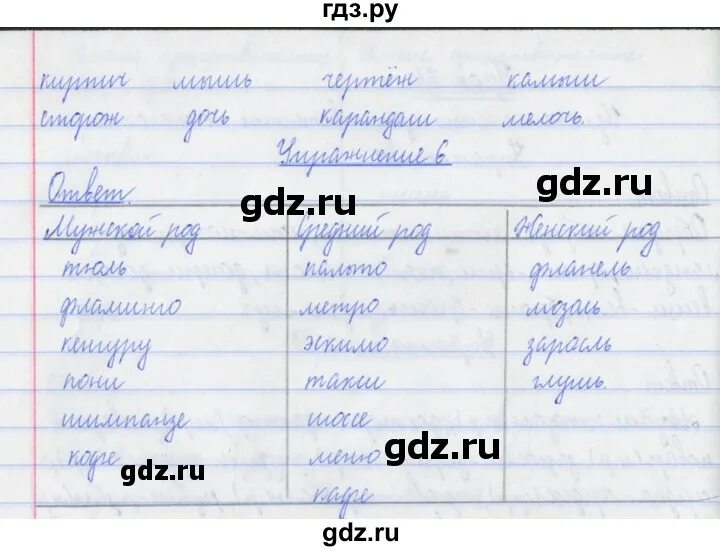 гдз.ру
кирпич мышь чертёж камыш
сторож дочь карандаш мелочь.
Упражнение 6
Ответ.
gdz.ru gdz.ru
Мужской род Средний род Женский род
тюль пальто фланель
фламинго метро мозоль
кенгуру эскимо заросль
пони такси глушь.
шимпанзе шоссе
кофе меню
gdz.ru gdz.ru
кафе
gdz.ru